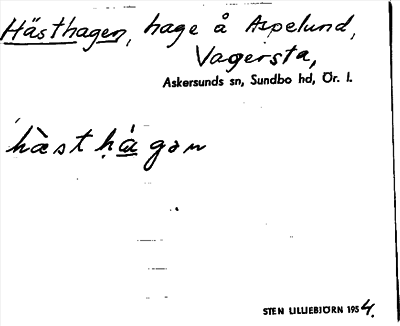 Hästhagen, hage å Aspelund,
Vagersta,
Askersunds sn, Sundbo hd, Ör. l.
hàst ḥá̱gən
STEN LILLIEBJÖRN 1954.